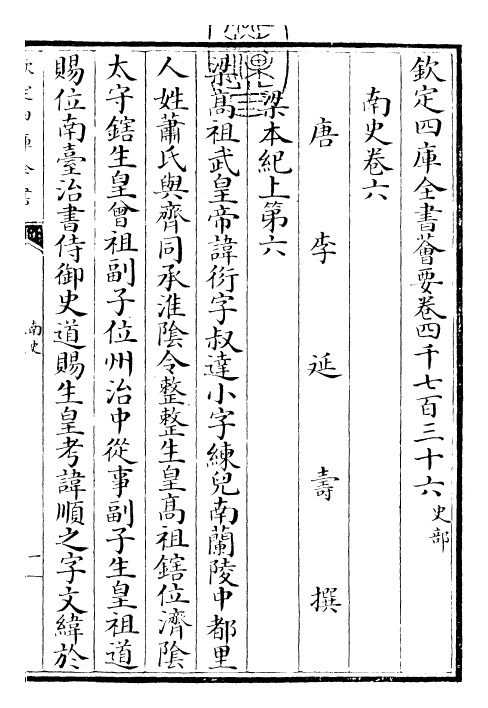 欽定四庫全書薈要卷四千七百三十六 史部
南史卷六
唐 李 延 壽 撰
梁本紀上第六
梁髙祖武皇帝諱衍字叔達小字練兒南蘭陵中都里
人姓蕭氏與齊同承淮陰令整整生皇髙祖鎋位濟陰
太守鎋生皇曾祖副子位州治中從事副子生皇祖道
賜位南臺治書侍御史道賜生皇考諱順之字文緯於
欽定四庫全書
南史
一